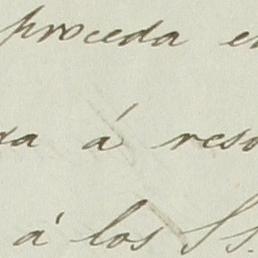 proceda en
da á reso
á los SS.